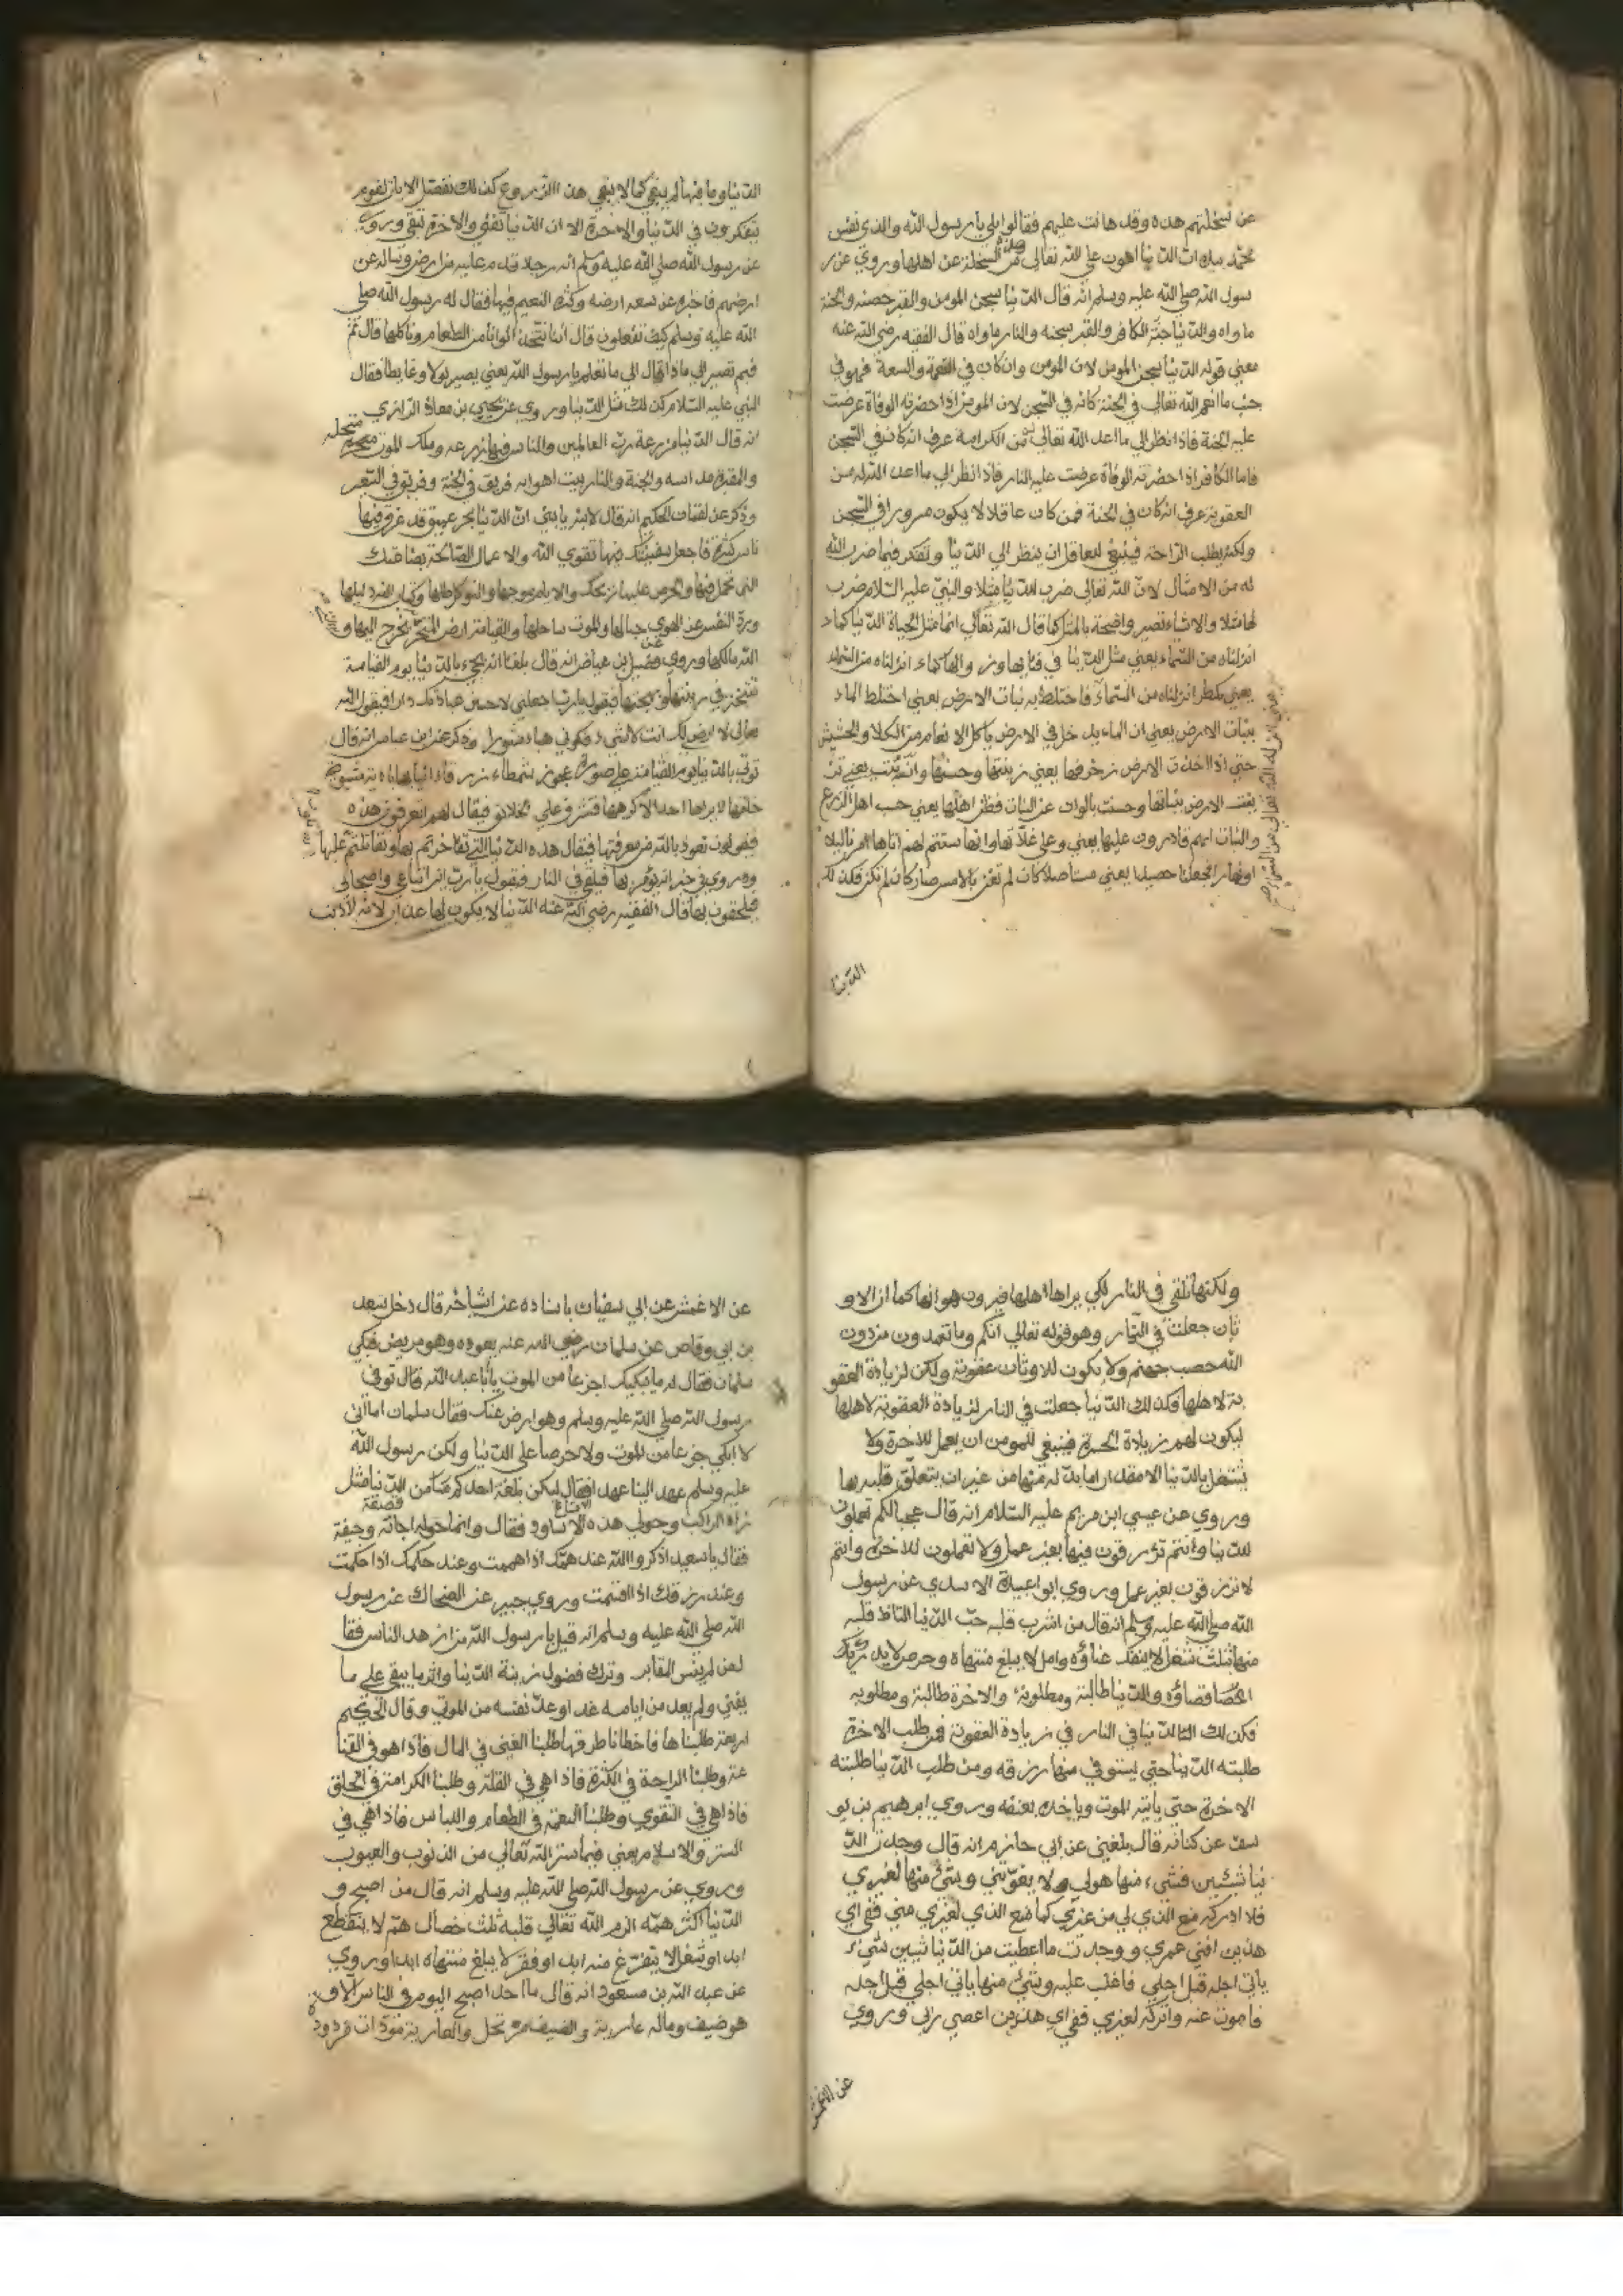 عن سخلتهم هذه وقد هانت عليهم فقالوا بلي يا رسول الله والذي نفس
محمد بيده ان الدنيا اهون علي الله تعالى من هذه السخلة عن اهلها وروي عن ر
سول الله صلي الله عليه وسلم انه قال الدنيا سجن المومن والقبر حصنه والجنة
ماواه والدنيا جنة الكافر والقبر سجنه والنار ماواه قال الفقيه رضي الله عنه
معني قوله الدنيا سجن المومن لان المؤمن وان كان في النعمة والسعة فهو في
جنب ما انعم الله تعالي في الجنة كانه في السجن لان المومن اذا حضرته الوفاة عرضت
عليه الجنة فاذا نظر الي ما اعد الله تعالى من الكرامة عرف انه كان في السجن
فاما الكافر اذا حضرته الوفاة عرضت عليه النار فاذا نظر الي ما اعد الله له من
العقوبة عرف انه كان في الجنة فمن كان عاقلا لا يكون مسرورا في السجن
ولكنه يطلب الراحة فينبغي للعاقل ان ينظر الي الدنيا ويتفكر فيما ضرب الله
له من الامثال لان الله تعالي ضرب للدنيا مثلا والنبي عليه السلام ضرب
لها مثلا والاشياء تصير واضحة بالمثل كما قال الله تعالي انما مثل الحياة الدنيا كماء
انزلناه من السماء يعني مثل الدنيا في فنائها وزوالها كماء انزلناه من السماء
يعني كمطر انزلناه من السماء فاختلط به نبات الارض يعني اختلط الماء
بنبات الارض يعني ان الماء يدخل في الارض ياكل الانعام من الكلا والحشيش
حتي اذا اخذت الارض زخرفها يعني زينتها وحسنها وازينت يعني تز
ينت الارض بنباتها وحسنت بالوان عن النبات فظن اهلها يعني حسب اهل الزرع
والنبات انهم قادرون عليها يعني وعلي غلاتها وانها ستتم لهم اتاها امرنا ليلا
او نهارا فجعلنا حصيدا يعني مستاصلا كان لم تغن بالامس صار كان لم تكن فكذلك
الدنيا
الدنيا وما فيها لم يبقي كما لا يبقي هذا الزروع كذلك نفصل الايات لقوم
يتفكرون في الدنيا والاخرة الا ان الدنيا تفني والاخرة تبقي وروي
عن رسول الله صلي الله عليه وسلم انه رجلا قدم عليه من ارض وساله عن
ارضهم فاخبره عن سعة ارضه وكثرة النعيم فيها فقال له رسول الله صلي
الله عليه وسلم كيف تفعلون قال انا نتخذ الوانا من الطعام وناكلها قال ثم
فبم تصير الي ماذا قال الي ما تعلم يا رسول الله يعني يصير بولا وغايطا فقال
النبي عليه السلام كذلك مثل الدنيا وروي عن يحيي بن معاذ الرازي
انه قال الدنيا مزرعة رب العالمين والناس فيها زرعه وملك الموت منجله
والمقبرة مداسه والجنة والنار بيت اهرايه فريق في الجنة وفريق في السعير
وذكر عن لقمان الحكيم انه قال لابنه يا بني ان الدنيا بحر عميق قد غرق فيها
ناس كثيرة فاجعل سفينتك فيها تقوي الله والاعمال الصالحة بضاعتك
التي تحمل فيها والحرص عليها ربحك والايام موجها والتوكل ظلها وكتاب الله دليلها
ورد النفس عن الهوي حبالها والموت ساحلها والقيامة ارض المتجر تخرج اليها و
الله مالكها وروي عن فضيل بن عياض انه قال بلغنا انه يجيء بالدنيا يوم القيامة
تتبختر في زينتها وبهجتها فيقول يا رب اجعلني لاحسن عبادك دارا فيقول الله
تعالي لا ارضي لك انت لا شيء فكوني هباء منثورا وذكر عن ابن عباس انه قال
توتي بالدنيا يوم القيامة علي صورة عجوز شمطاء زرقاء انيابها بادية مشوه
خلقها لا يراها احد الا كرهها فتشرف علي الخلائق فيقال لهم اتعرفون هذه
فيقولون نعوذ بالله من معرفتها فيقال هذه الدنيا التي تفاخرتم بها وتقاتلتم عليها
وروي في خبر انه يؤمر بها فيلقي في النار فيقول يا رب اين اتباعي واصحابي
فيلحقون بها قال الفقيه رضي الله عنه الدنيا لا يكون لها عذاب لانه لا ذنب
ولكنها تلقي في النار لكي يراها اهلها فيرون هوانها كما ان الاو
ثان جعلت في النار وهو قوله تعالي انكم وما تعبدون من دون
الله حصب جهنم ولا يكون للاوثان عقوبة ولكن لزيادة العقو
بة لاهلها فكذلك الدنيا جعلت في النار لزيادة العقوبة لاهلها
ليكون لهم زيادة الحسرة فينبغي للمومن ان يعمل للاخرة ولا
يشتغل بالدنيا الا مقدار ما بد له منها من غير ان يتعلق قلبه بها
وروي عن عيسي ابن مريم عليه السلام انه قال عجبا لكم تعملون
للدنيا وانتم ترزقون فيها بغير عمل ولا تعملون للاخرة وانتم
لا ترزقون بغير عمل وروي ابو اعبيدة الاسدي عن رسول
الله صلي الله عليه وسلم انه قال من اشرب قلبه حب الدنيا التاط قلبه
منها بثلث شغل لا ينفك عناؤه وامل لا يبلغ منتهاه وحرص لا يدرك
والدنيا طالبة ومطلوبة والاخرة طالبة ومطلوبه
فكذلك الدنيا في النار في زيادة العقوبة فمن طلب الاخرة
طلبته الدنيا حتي يستوفي منها رزقه ومن طلب الدنيا طلبته
الاخرة حتي ياتيه الموت وياخذ بعنقه وروي ابرهيم بن يو
سف عن كنانه قال بلغني عن ابي حازم انه قال وجدت الد
نيا شيئين فشيء منها هو لي ولا يفوتني وشيء منها لغيري
فلا ادركه منع الذي لي من غيري كما منع الذي لغيري مني ففي اي
هذين افني عمري ووجدت ما اعطيت من الدنيا شيئين شيء
ياتي اجله قبل اجلي فاغلب عليه وشيء منها ياتي اجلي قبل اجله
فاموت عنه واتركه لغيري ففي اي هذين اعصي ربي وروي
عن الاعمش
عن الاعمش عن ابي سفيان باسناده عن اشياخه قال دخل سعد
بن ابي وقاص عن سلمان رضي الله عنه يعوده وهو مريض فبكي
سلمان فقال له ما يبكيك اجزعا من الموت يا ابا عبد الله قال توفي
رسول الله صلي الله عليه وسلم وهو راض عنك فقال سلمان اما اني
لا ابكي جزعا من الموت ولا حرصا علي الدنيا ولكن رسول الله
عليه وسلم عهد الينا عهدا فقال ليكن بلغة احدكم من الدنيا مثل
زاد الراكب وحولي هذه الاساود فقال وانما حوله اجانة وجفنة
فقال يا سعيد اذكروا الله عند همك اذا هممت وعند حكمك اذا حكمت
وعند رزقك اذا اقسمت وروي جبير عن الضحاك عن رسول
الله صلي الله عليه وسلم انه قيل يا رسول الله من ازهد الناس فقا
ل من لم ينس المقابر وترك فضول زينة الدنيا واثر ما يبقي علي ما
يفني ولم يعد من ايامه غدا وعد نفسه من الموتي وقال الحكيم
اربعة طلبناها فاخطانا طرقها طلبنا الغني في المال فاذا هو في القنا
عة وطلبنا الراحة في الكثرة فاذا هي في القلة وطلبنا الكرامة في الخلق
فاذا هي في التقوي وطلبنا النعمة في الطعام واللباس فاذا هي في
الستر والاسلام يعني فيما ستر الله تعالي من الذنوب والعيوب
وروي عن رسول الله صلي الله عليه وسلم انه قال من اصبح و
الدنيا اكثر همه الزم الله تعالي قلبه ثلث خصال هم لا ينقطع
ابدا وشغلا لا يتفرغ منه ابدا وفقر لا يبلغ منتهاه ابدا وروي
عن عبد الله بن مسعود انه قال ما احد اصبح اليوم في الناس الا و
هو ضيف وماله عارية والضيف مرتحل والعارية مؤداة مردود